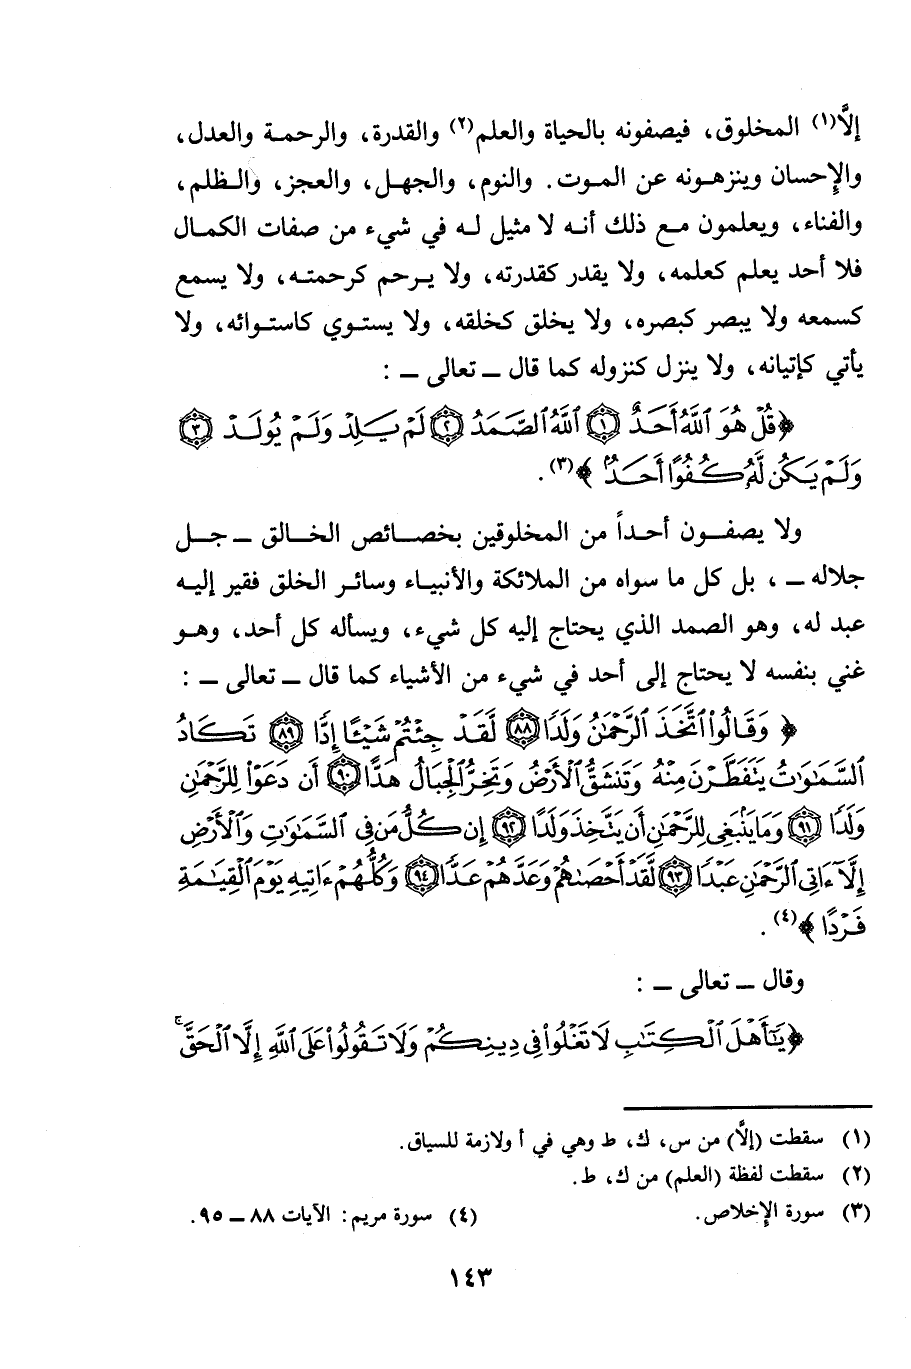 إلَّا(١) المخلوق، فيصفونه بالحياة والعلم(٢) والقدرة، والرحمة والعدل،
والإحسان وينزهونه عن الموت. والنوم، والجهل، والعجز، والظلم،
والفناء، ويعلمون مع ذلك أنه لا مثيل له في شيء من صفات الكمال
فلا أحد يعلم كعلمه، ولا يقدر كقدرته، ولا يرحم كرحمته، ولا يسمع
كسمعه ولا يبصر كبصره، ولا يخلق كخلقه، ولا يستوي كاستوائه، ولا
يأتي كإتيانه، ولا ينزل كنزوله كما قال ــ تعالى ــ :
﴿قُلْ هُوَ ٱللَّهُ أَحَدٌ ١ ٱللَّهُ ٱلصَّمَدُ ٢ لَمْ يَلِدْ وَلَمْ يُولَدْ ٣
وَلَمْ يَكُن لَّهُۥ كُفُوًا أَحَدٌۢ ﴾(٣).
ولا يصفون أحداً من المخلوقين بخصائص الخالق ــ جل
جلاله ــ ، بل كل ما سواه من الملائكة والأنبياء وسائر الخلق فقير إليه
عبد له، وهو الصمد الذي يحتاج إليه كل شيء، ويسأله كل أحد، وهو
غني بنفسه لا يحتاج إلى أحد في شيء من الأشياء كما قال ــ تعالى ــ :
﴿ وَقَالُوا۟ ٱتَّخَذَ ٱلرَّحْمَٰنُ وَلَدًا ٨٨ لَّقَدْ جِئْتُمْ شَيْـًٔا إِدًّا ٨٩ تَكَادُ
ٱلسَّمَٰوَٰتُ يَتَفَطَّرْنَ مِنْهُ وَتَنشَقُّ ٱلْأَرْضُ وَتَخِرُّ ٱلْجِبَالُ هَدًّا ٩٠ أَن دَعَوْا۟ لِلرَّحْمَٰنِ
وَلَدًا ٩١ وَمَا يَنۢبَغِى لِلرَّحْمَٰنِ أَن يَتَّخِذَ وَلَدًا ٩٢ إِن كُلُّ مَن فِى ٱلسَّمَٰوَٰتِ وَٱلْأَرْضِ
إِلَّآ ءَاتِى ٱلرَّحْمَٰنِ عَبْدًا ٩٣ لَّقَدْ أَحْصَىٰهُمْ وَعَدَّهُمْ عَدًّا ٩٤ وَكُلُّهُمْ ءَاتِيهِ يَوْمَ ٱلْقِيَٰمَةِ
فَرْدًا ﴾(٤).
وقال ــ تعالى ــ :
﴿يَٰٓأَهْلَ ٱلْكِتَٰبِ لَا تَغْلُوا۟ فِى دِينِكُمْ وَلَا تَقُولُوا۟ عَلَى ٱللَّهِ إِلَّا ٱلْحَقَّ ۚ
(١) سقطت (إلَّا) من س، ك، ط وهي في أ ولازمة للسياق.
(٢) سقطت لفظة (العلم) من ك، ط.
(٣) سورة الإخلاص. (٤) سورة مريم: الآيات ٨٨ ــ ٩٥.
١٤٣